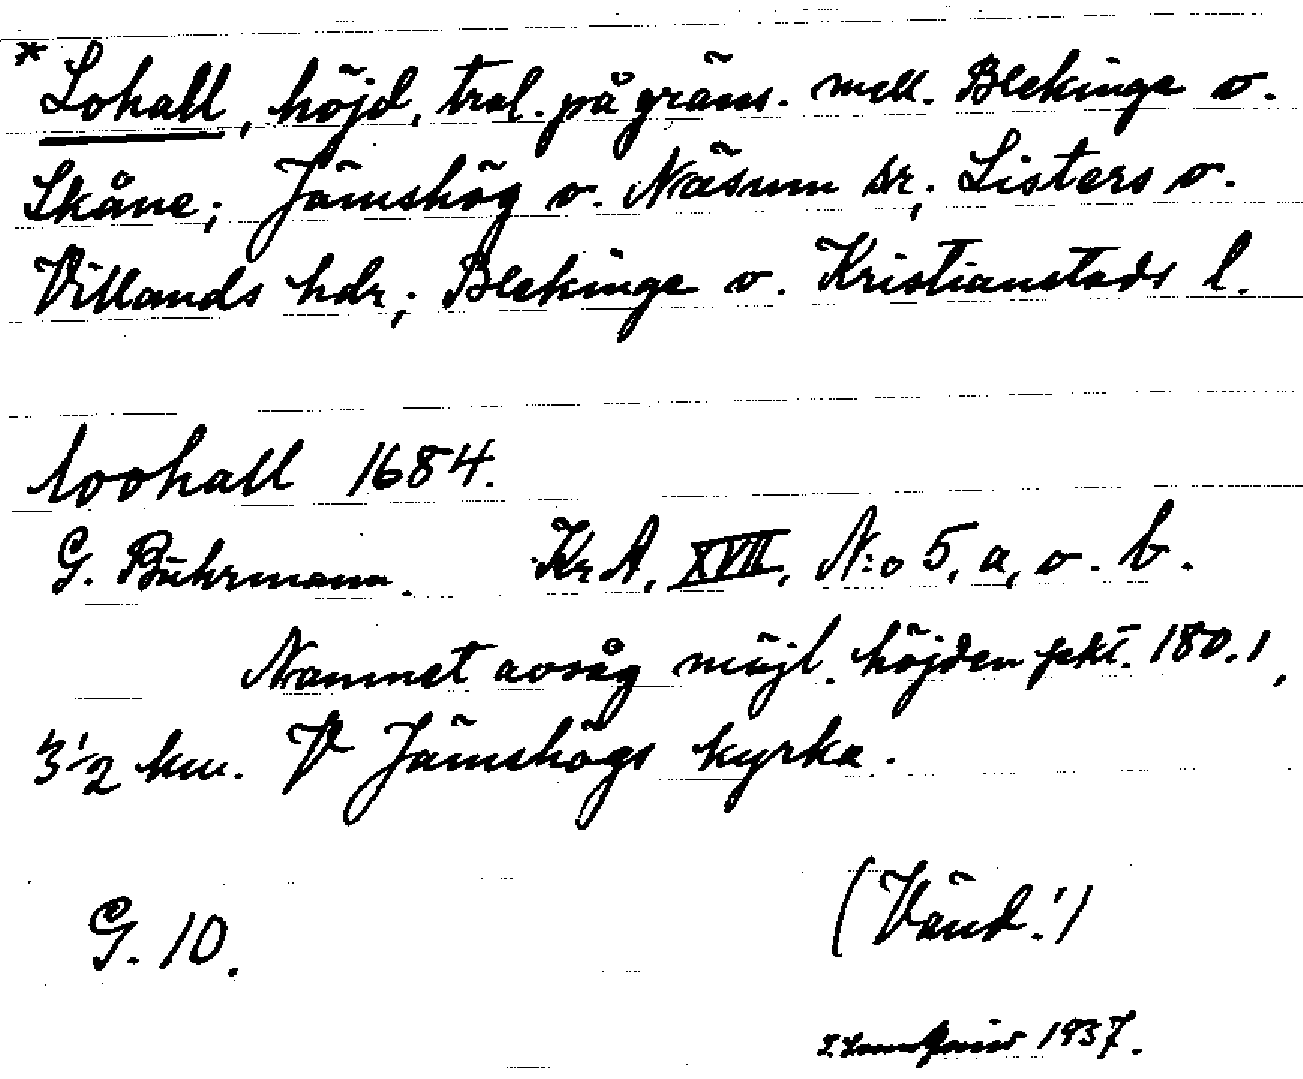 * Lohall, höjd, trol. på gräns. mell. Blekinge o.
Skåne; Jämshög o. Näsum sr, Listers o.
Villands hdr; Blekinge o. Kristianstads l.
loohall 1684.
G. Buhrmann. Kr A, XVII, N:o 5, a, o. b.
Namnet avsåg möjl. höjden pkt. 180.1,
3 1/2 km. V Jämshögs kyrka.
G. 10.
(Vänd!)
1937.